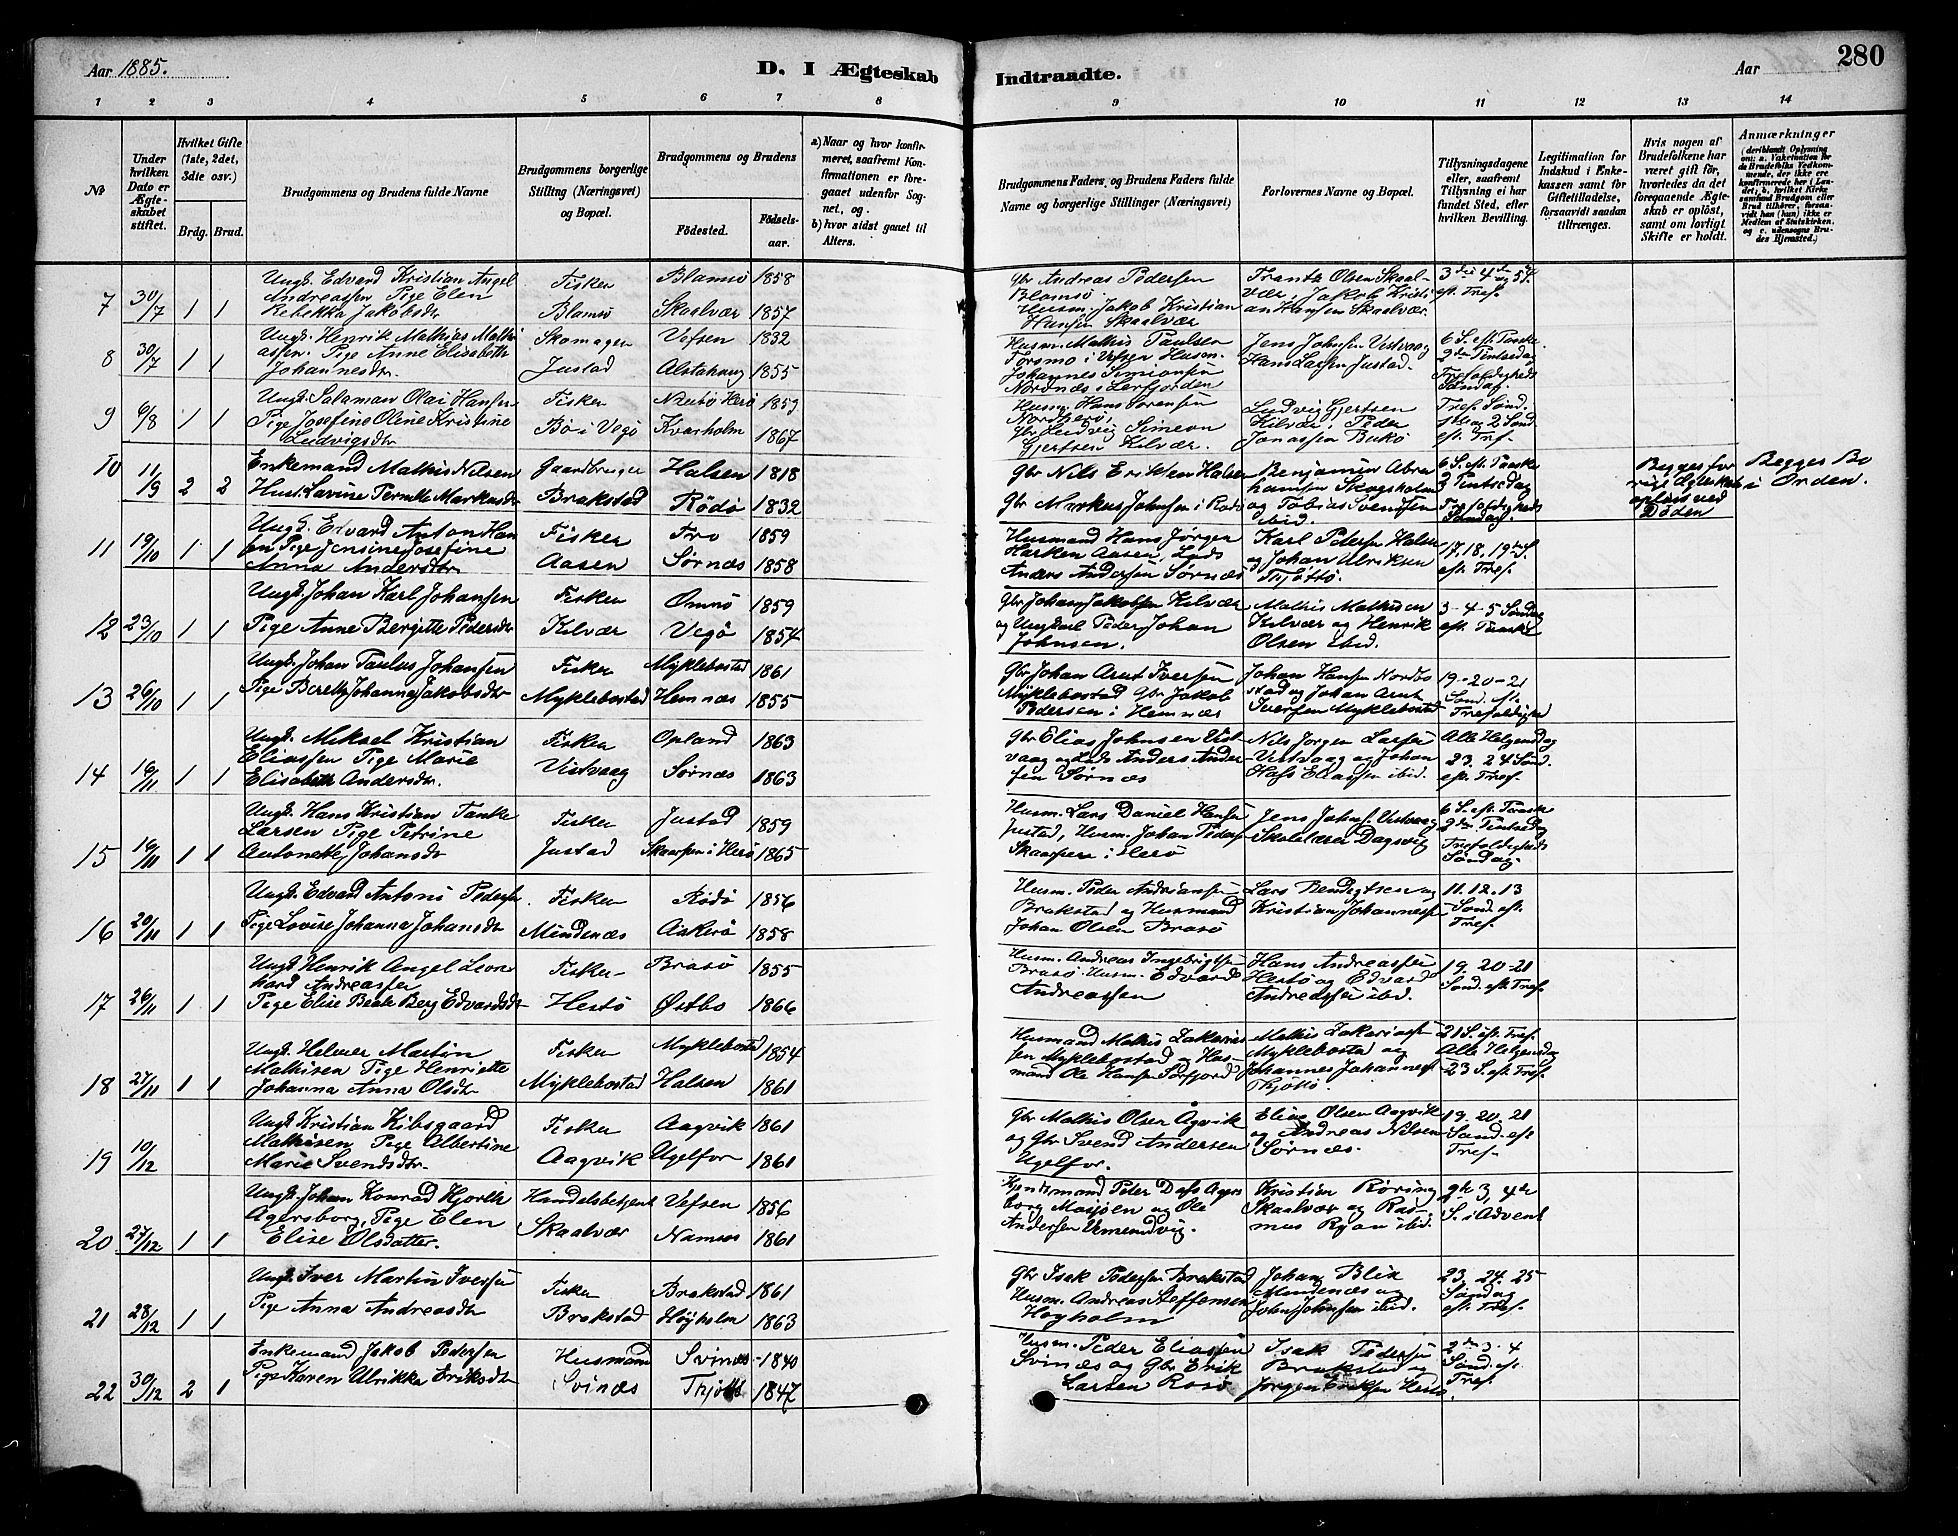 Aar 1885.
D. I Ægteskab
Indtraadte.
Aar
280
1 2 3 4 5 6 7 8 9 10 11 12 13 14
No
Under hvilken Dato er Ægteskabet stiftet.
Hvilket Gifte (1ste, 2det, 3die osv.)
Brdg. Brud.
Brudgommens og Brudens fulde Navne
Brudgommens borgerlige Stilling (Næringsvei) og Bopæl.
Brudgommens og Brudens
Fødested.
Fødselsaar.
a) Naar og hvor konfirmeret, saafremt Konfirmationen er foregaaet udenfor Sognet, og
b) hvor sidst gaaet til Alters.
Brudgommens Faders, og Brudens Faders fulde Navne og borgerlige Stillinger (Næringsvei)
Forlovernes Navne og Bopæl.
Tillysningsdagene eller, saafremt Tillysning ei har fundet Sted, efter hvilken Bevilling.
Legitimation for Indskud i Enkekassen samt for Giftetilladelse, forsaavidt saadan tiltrænges.
Hvis nogen af Brudefolkene har været gift før, hvorledes da det foregaaende Ægteskab er opløst, samt om lovligt Skifte er holdt.
Anmærkninger
7 30/7 1 1 Ungk. Edvard Kristian Angel Andreassen Pige Elen Rebekka Jakobsdtr
Fisker Blamsø
Blamsø 1858
Skaalvær 1857
Gbr Andreas Pedersen Blamsø. Husm. Jakob Kristian Hansen Skaalvær
Frantz Olsen Skaalvær, Jakob Kristian Hansen Skaalvær.
3die 4de og 5te S. eft. Tref.
8 30/7 1 1 Ungk. Henrik Mathias Mathiassen. Pige Anne Elisabeth Johannesdtr
Skomager Justad
Vefsen 1832
Alstahaug 1855
Husm. Mathis Paulsen Forsmo i Vefsen Husm. Johannes Simonsen Nordnæs i Lerfjorden
Jens Johnsen Vistvaag Hans Larsen Justad.
6 S. eft. Paaske 2den Pintsedag Trefoldigheds Søndag.
9 6/8 1 1 Ungk. Salamon Olai Hansen Pige Josefine Oline Kristine Ludvigsdtr
Fisker Bø i Vegø
Herø 1859
Kvarholm 1867
Husm. Hans Sørensen Gbr Ludvig Simeon Gjertsen Kilvær.
Ludvig Gjertsen Kilvær, Peder Jonassen Bukø
Tref. Sønd. 1ste og 2 Sønd. eft. Tref.
10 11/9 2 2 Enkemand Mathis Nilsen Hust. Lavine Pernelle Markusdtr
Gaardbruger Brakstad
Halsen 1818
Rödø 1832
Gbr Nils Eriksen Halsen Gbr Markus Johnsen i Rødø
Benjamin Abrahamsen Skogsholm og Tobias Svendsen ibid.
6 S. eft. Paaske 2 Pintsedag Trefoldigheds Søndag.
Begges forrige Ægteskab opløst ved Døden
Begges Bo i Orden.
11 19/10 1 1 Ungk. Edvard Anton Hansen Pige Jensine Josefine Anna Andersdtr
Fisker Aasen
Tro 1859
Sørnæs 1858
Husmand Hans Jørgen Harken Aasen, Lods Anders Andersen Sørnæs
Karl Petersen Halsen og Johan Ulriksen Thjøttø.
17. 18. 19de S. eft. Tref.
12 23/10 1 1 Ungk. Johan Karl Johansen Pige Anne Bergitte Pedersdtr
Fisker Kilvær
Omnø 1859
Vegø 1854
Gbr Johan Jakobsen Kilvær og Ungkarl Peder Johan Johnsen.
Mathis Mathisen Kilvær og Henrik Olsen ibid.
3-4-5 Søndag eft. Paaske
13 26/10 1 1 Ungk. Johan Paulus Johansen Pige Berette Johanna Jakobsdtr
Fisker Myklebostad
Myklebostad 1861
Hemnæs 1855
Gbr Johan Arnt Iversen Myklebostad Gbr Jakob Pedersen i Hemnæs
Johan Hansen Nordbostad og Johan Arnt Iversen Myklebostad
19-20-21 Sønd. eft. Trefoldighed
14 16/11 1 1 Ungk. Mikael Kristian Eliassen Pige Marie Elisabeth Andersdtr.
Fisker Vistvaag
Opland 1863
Sørnæs 1863
Gbr Elias Johnsen Vistvaag og Lods Anders Andersen Sørnæs
Nils Jørgen Larsen Vistvaag og Johan Eliassen ibid.
Alle Helgensdag 23. 24 Sønd. eft. Tref.
15 16/11 1 1 Ungk. Hans Kristian Tanke Larsen Pige Petrine Antonette Johansdtr
Fisker Justad
Justad 1859
Skaapsen i Herø 1865
Husm. Lars Daniel Hansen Justad, Husm. Johan Peders. i Herø
Jens Johns. Vistvaag Skolelærer Dagsvig
6 S. eft. Paaske 2den Pintsedag Trefoldigheds Søndag.
16 20/11 1 1 Ungk. Edvard Antoni Pedersen Pige Lovise Johanna Johansdtr
Fisker Mindenæs
Rødø 1856
Askerø 1858
Husm. Peder Andriansen Brakstad og Husmand Johan Olsen Brasø
Lars Bendigtsen og Kristian Johannesen
11. 12. 13 Sønd. eft. Tref.
17 26/11 1 1 Ungk. Henrik Angel Leonhard Andreassen Pige Elise Beate Berg Edvardsdtr
Fisker Hestø
Brasø 1855
Østbø 1866
Husm. Andreas Ingebrigtsen Brasø. Husm. Edvard Andreassen
Hans Andreassen Hestø og Edvard Andreassen ibid.
19. 20-21 Sønd. eft. Tref.
18 27/11 1 1 Ungk. Helmer Martin Mathisen Pige Henriette Johanna Anna Olsdtr
Fisker Myklebostad
Myklebostad 1854
Halsen 1861
Husmand Mathis Zakariassen Myklebostad og Husmand Ole Hansen Sørfjord
Mathis Zakariassen Myklebostad og Johannes Johannessen Thjøttø.
21 S. eft. Tref. Alle Helgensdag 23 S. eft. Tref.
19 10/12 1 1 Ungk. Kristian Kibsgaard Mathisen Pige Albertine Marie Svendsdtr.
Fisker Aagvik
Aagvik 1861
Ugelfor 1861
Gbr Mathis Olsen Agvik og Gbr Svend Andersen Ugelfor.
Elias Olsen Aagvik og Andreas Nilsen Sørnæs.
19. 20. 21 Sønd. eft. Tref.
20 27/12 1 1 Ungk. Johan Konrad Hjorth Agersborg, Pige Elen Elise Olsdatter.
Handelsbetjent Skaalvær
Vefsen 1856
Namsos 1861
Peder Dass Agersborg Mosjøen og Ole Andersen
Kristian Røring Skaalvær og Rasmus Ryan ibid.
2de 3, 4de S. i Advent
21 28/12 1 1 Ungk. Iver Martin Iversen Pige Anna Andreasdtr
Fisker Brakstad
Brakstad 1861
Høyholm 1863
Gbr Isak Pedersen Brakstad Husm. Andreas Steffensen Høyholm
Johan Blix Mindenæs og John Johnsen ibid.
23. 24. 25 Søndag eft. Tref.
22 30/12 2 1 Enkemand Jakob Pedersen Pige Karen Ulrikka Eriksdtr
Husmand Svinæs
Svinæs 1840
Thjøttø 1847
Husm. Peder Eliassen Svinæs og Gbr Erik Larsen Rosø
Isak Pedersen Brakstad og Jørgen Eriksen Hestø.
2den 3-4 Sønd. eft. Tref.